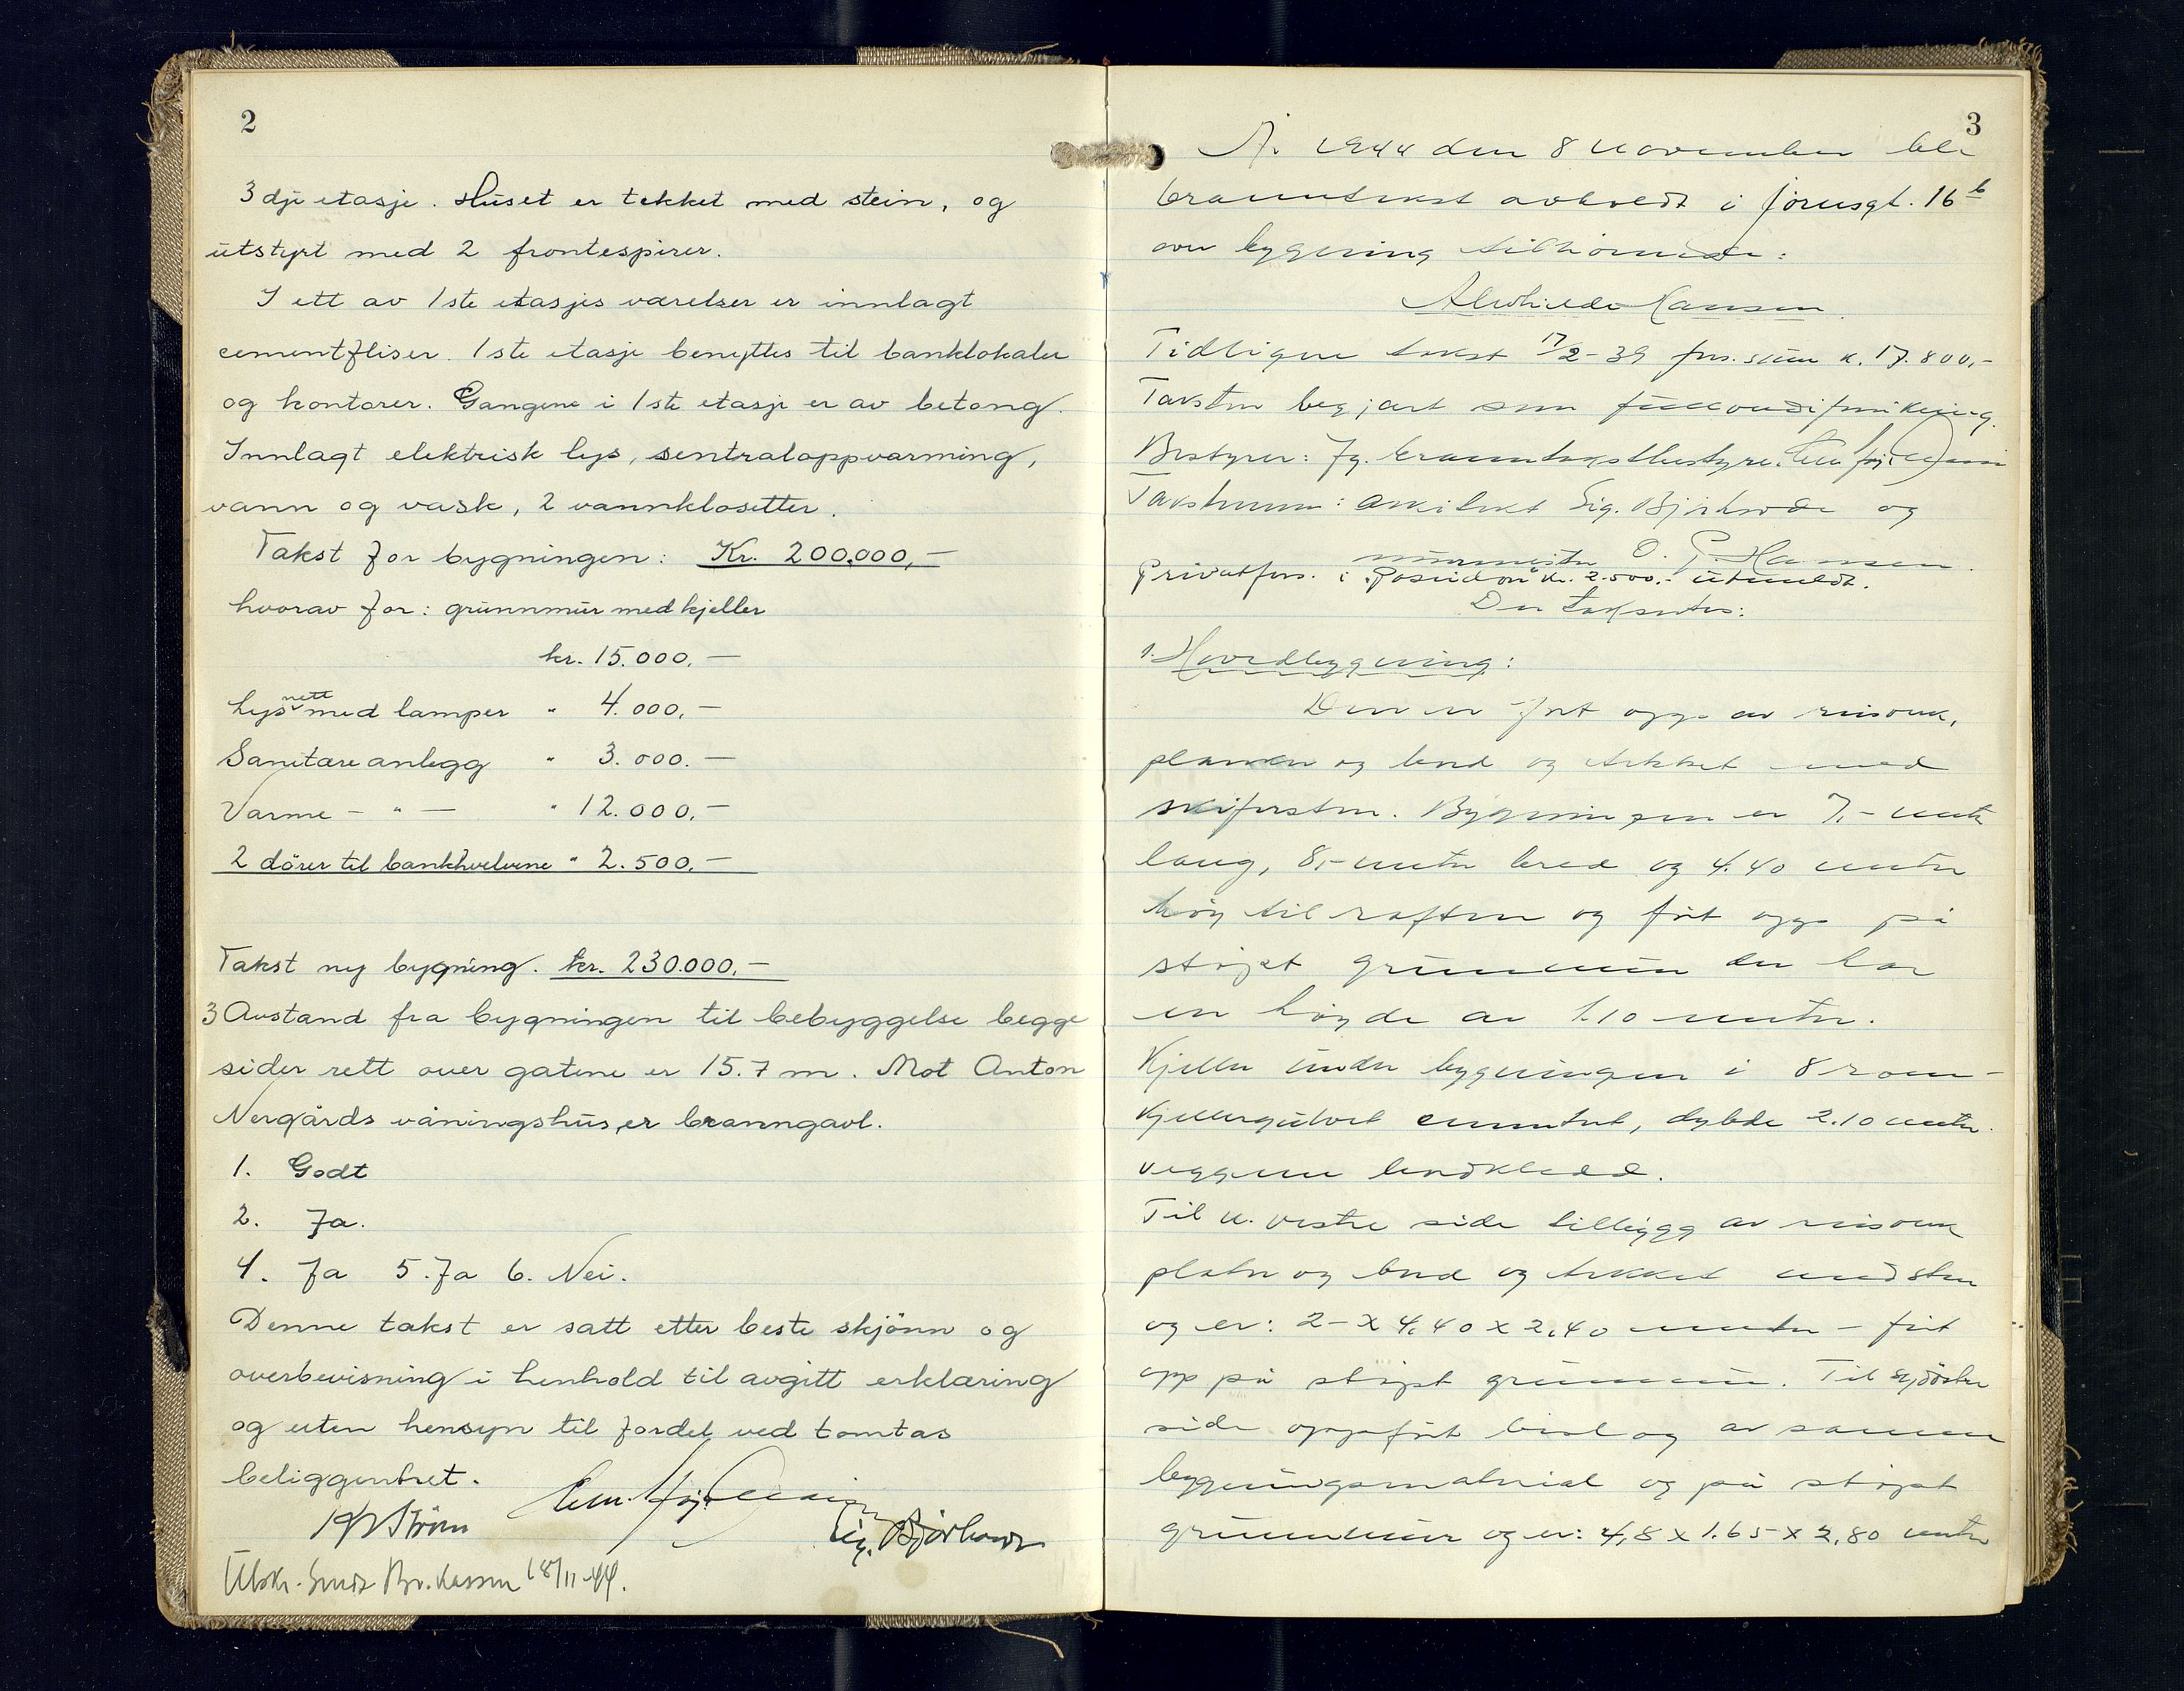 2
3dje etasje. Huset er tekket med stein, og
utstyrt med 2 frontespirer.
I ett av 1ste etasjes værelser er innlagt
cementfliser. 1ste etasje benyttes til banklokaler
og kontorer. Gangene i 1ste etasje er av betong.
Innlagt elektrisk lys, sentraloppvarming,
vann og vask, 2 vannklosetter.
Takst for bygningen: Kr. 200.000,-
hvorav for: grunnmur med kjeller
kr. 15.000.-
Lysnett med lamper " 4.000.-
Sanitære anlegg " 3.000.-
Varme - " - " 12.000.-
2 dörer til bankhvelvene " 2.500.-
Takst ny bygning. kr. 230.000.-
3 Avstand fra bygningen til bebyggelse begge
sider rett over gatene er 15.7 m. Mot Anton
Nergårds våningshus er branngavl.
1. Godt
2. Ja.
4. Ja 5. Ja 6. Nei.
Denne takst er satt etter beste skjönn og
overbevisning i henhold til avgitt erklæring
og uten hensyn til fordel ved tomtas
beliggenhet.
Ström Sig. Björhovde
Utskr. Sendt Br.kassen 18/11-44.
3
År 1944 den 8 november ble
branntakst avholdt i Jönsgt. 16 b
over bygning tilhörende:
Alvhilde Hansen.
Tidligere takst 17/2-39 fors.sum k. 17.800.-
Taksten begjært som fullverdiforsikring.
Bestyrer: Fg. branntakstbestyrer
Takstmenn: arkitekt Sig. Björhovde og
murmester O. P. Hansen.
Privatfors. i "Poseidon" kr. 2.500.- utmeldt.
Der taksertes:
1. Hovedbygning:
Den er fört opp av reisverk,
planker og bord og tekket med
skifersten. Bygningen er 7,- meter
lang, 8,- meter bred og 4.40 meter
höy til raften og fört opp på
stöpt grunnmur der har
en höyde av 1.10 meter.
Kjeller under bygningen i 8 rom -
Kjellergulvet cementert, dybde 2.10 meter.
veggene bordkledd.
Til n. vestre side tilbygg av reisverk
plater og bord og tekket med sten
og er: 2- x 4,40 x 2,40 meter - fört
opp på stöpt grunnmur. Til sydöstre
side oppfört bislag av samme
bygningsmaterial og på stöpt
grunnmur og er: 4,8 x 1.65 x 2,80 meter